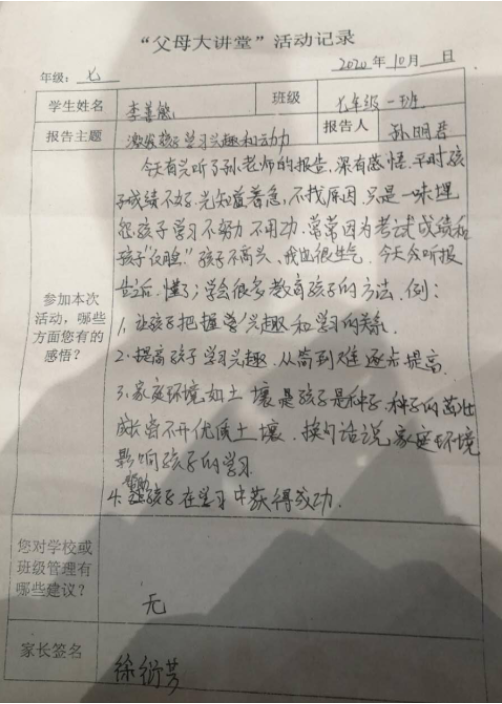 “父母大讲堂”活动记录
年级：七 2020年10月 日
学生姓名 李善能 班级 七年级一班
报告主题 激发孩子学习兴趣和动力 报告人 孙明君
参加本次活动，哪些方面您有的感悟？
今天有兴听了孙老师的报告，深有感悟.平时孩
子成绩不好.光知道着急，不找原因.只是一味埋
怨孩子学习不努力不用功.常常因为考试成绩和
孩子“翻脸”孩子不高兴、我也很生气.今天今听报
告之后.懂了；学会很多教育孩子的方法.例：
1.让孩子把握学习兴趣和学习的关系.
2.提高孩子学习兴趣.从简到难逐步提高.
3.家庭环境如土壤是孩子是种子.种子的茁壮
成长离不开优质土壤.换句话说家庭环境
影响孩子的学习.
4.帮助孩子在学习中获得成功.
您对学校或班级管理有哪些建议？
无
家长签名 徐衍芳